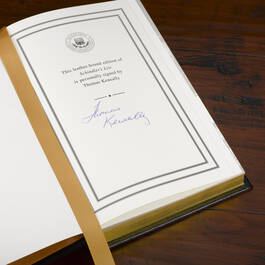 This leather bound edition of
Schindler's List
is personally signed by
Thomas Keneally
Thomas
Keneally